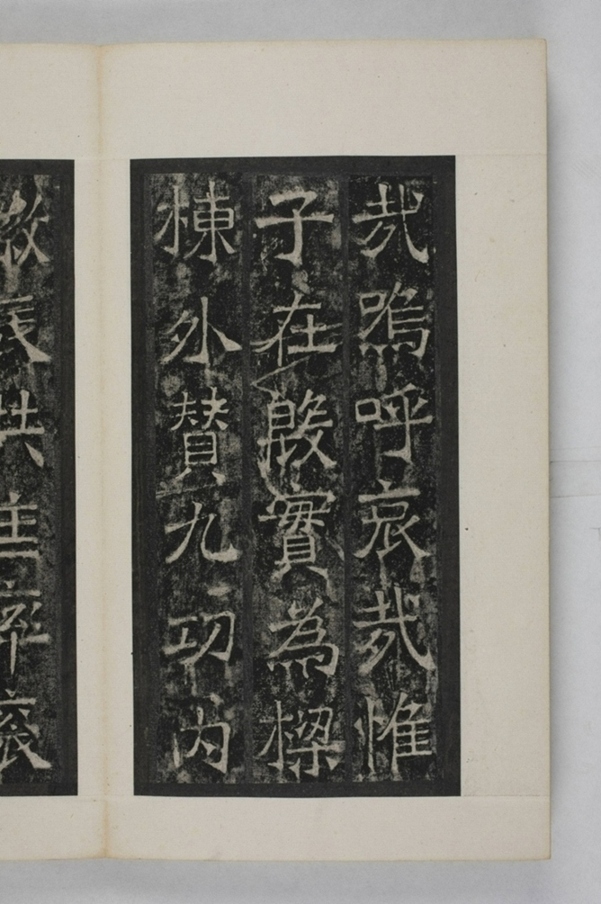 哉嗚呼哀哉惟
子在殷實為樑
棟外贊九功內
辰共